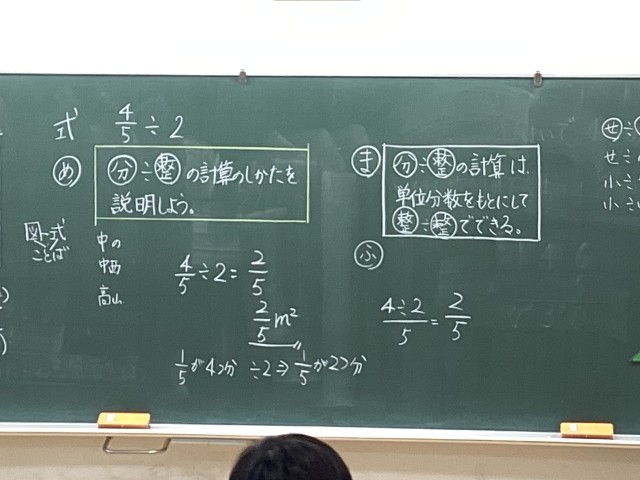 式 4/5÷2
め 分÷整の計算のしかたを
説明しよう。
図 式
ことば
中の
中西
高山
4/5÷2=2/5
2/5m²
1/5が4つ分 ÷2⇒1/5が2つ分
ま 分÷整の計算は、
単位分数をもとにして
整÷整でできる。
ふ
4÷2/5=2/5
せ÷
せ÷
小÷
小÷